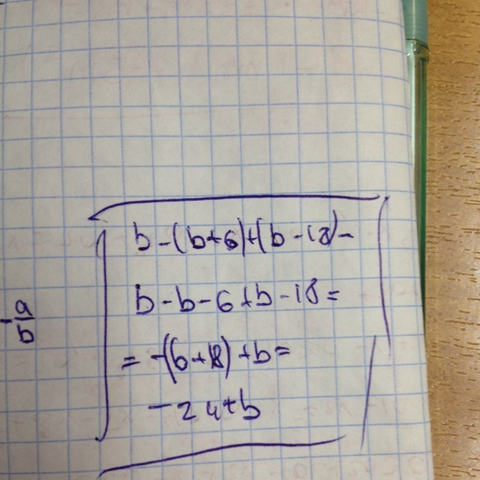 b-(b+6)+(b-18)-
b-b-6+b-18=
=-(6+18)+b=
-24+b
-a/b